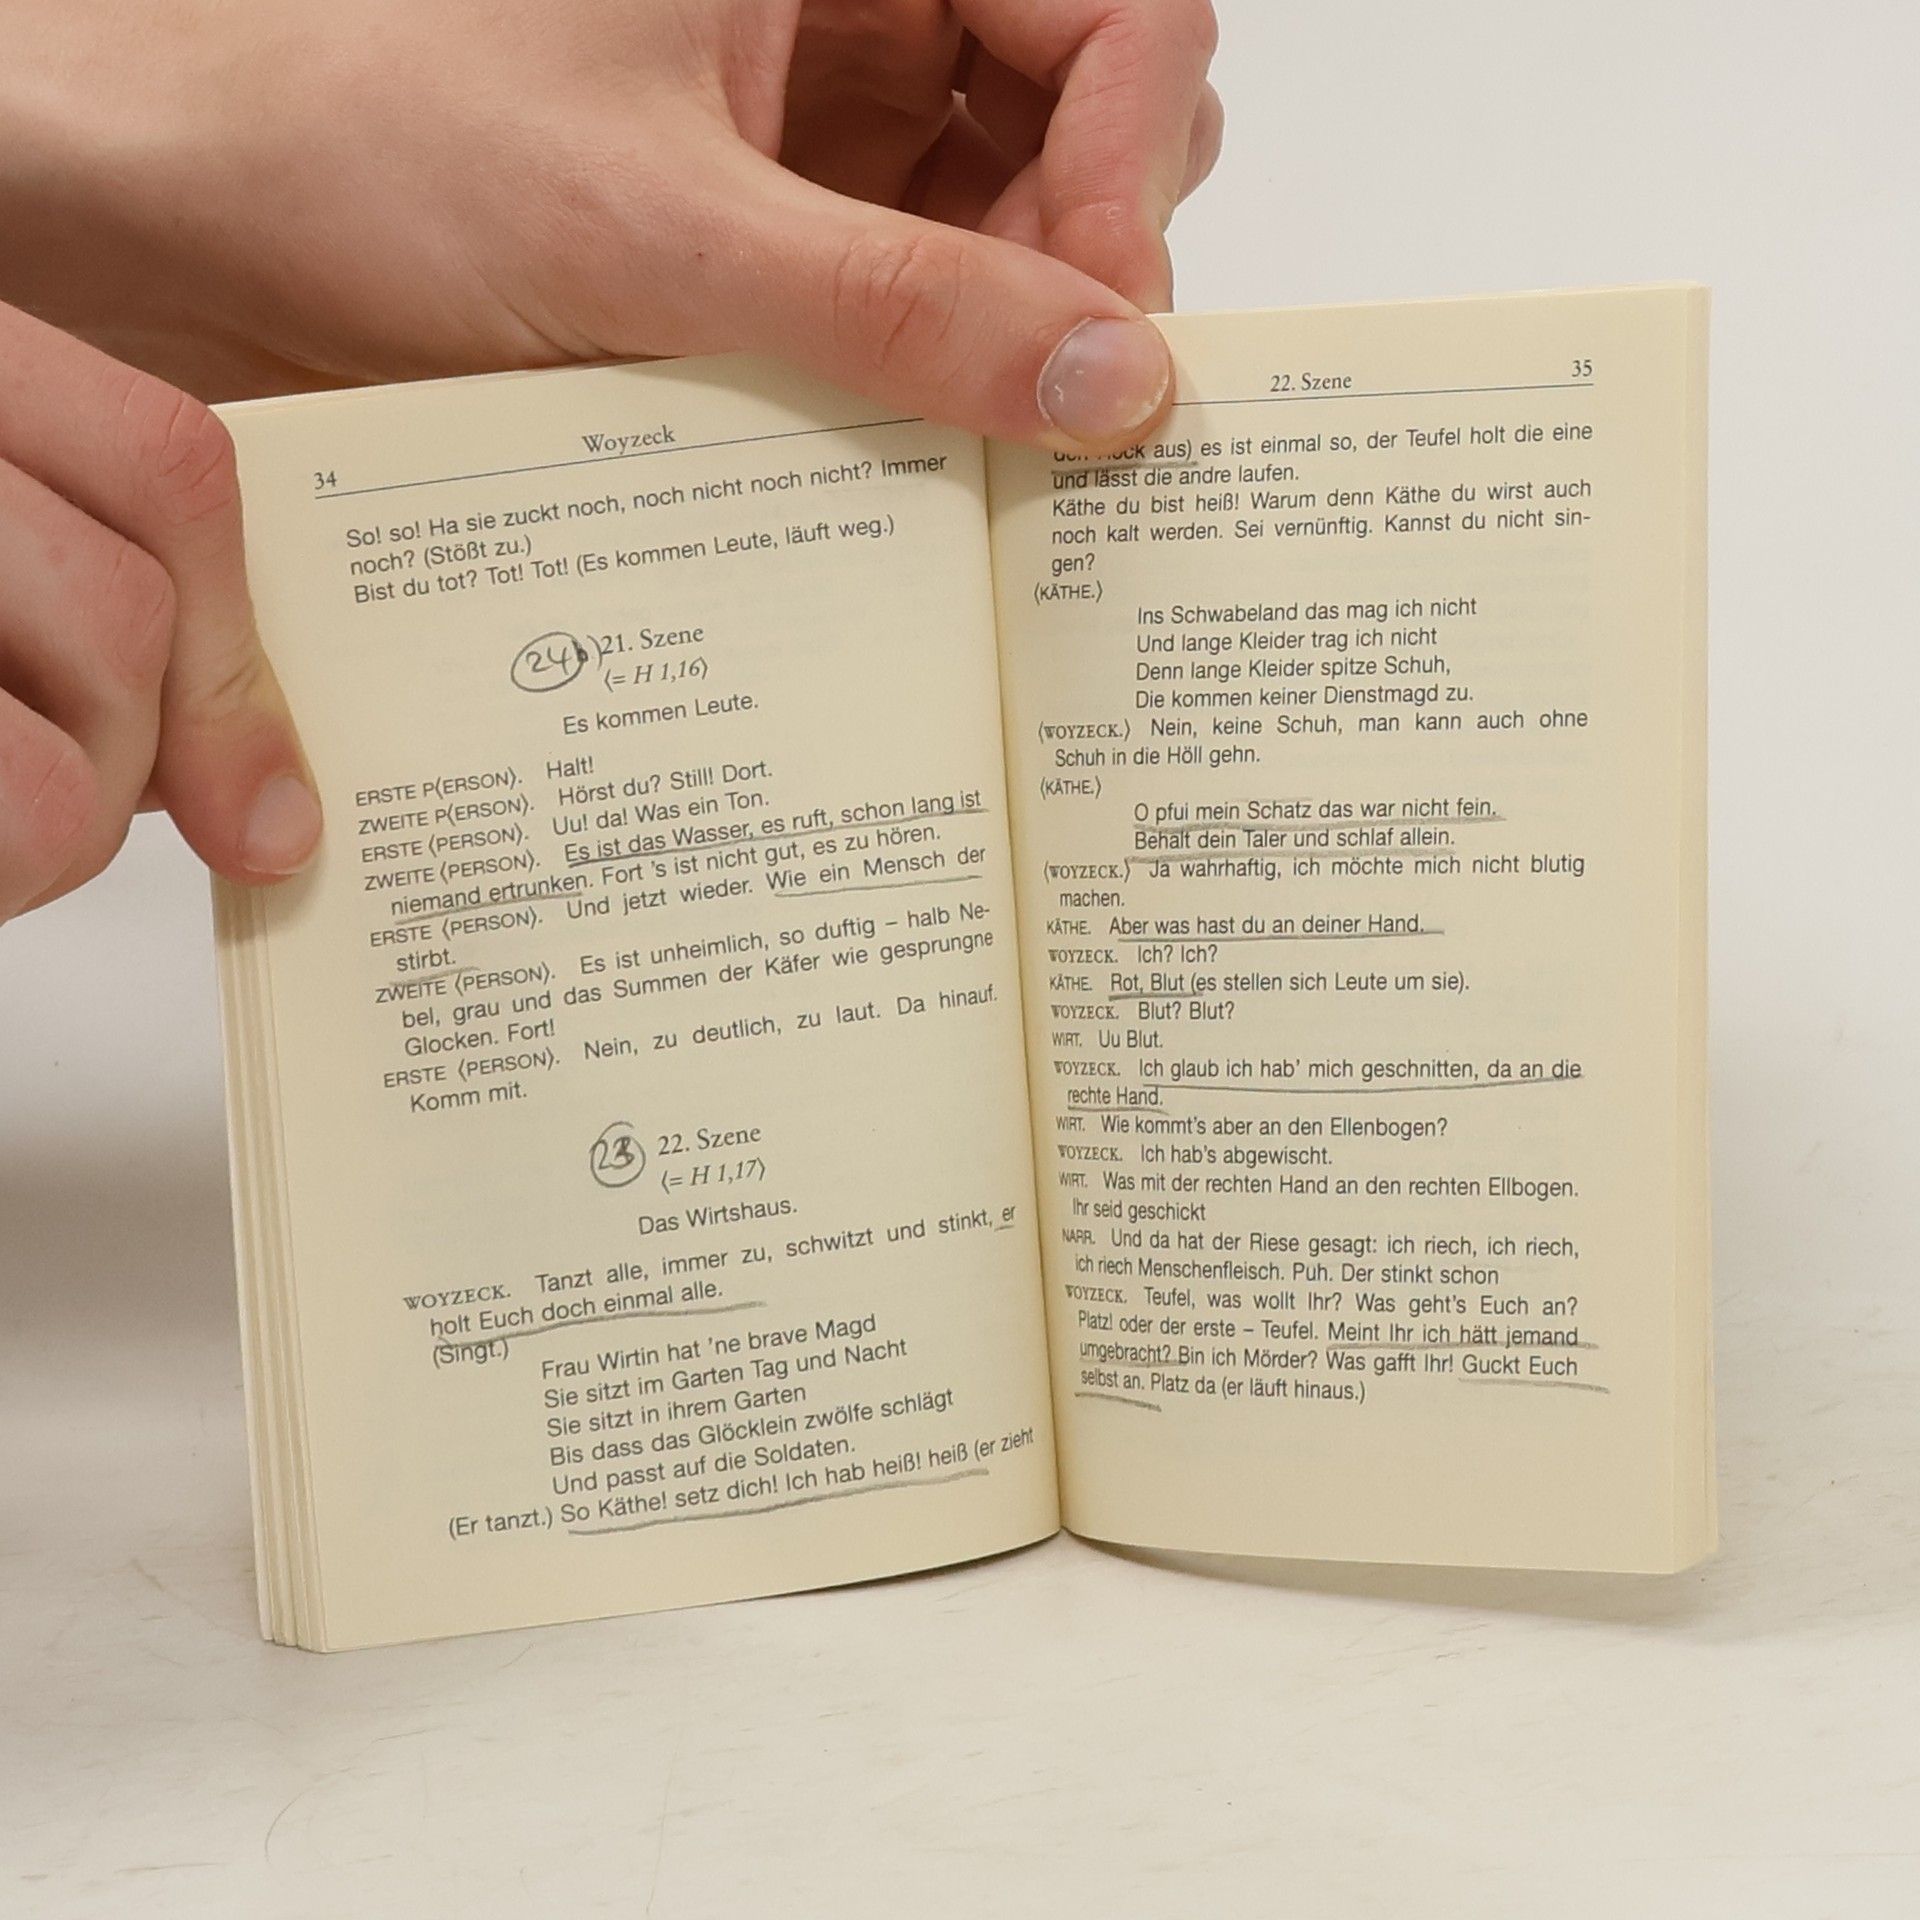 34
Woyzeck
So! so! Ha sie zuckt noch, noch nicht noch nicht? Immer
noch? (Stößt zu.)
Bist du tot? Tot! Tot! (Es kommen Leute, läuft weg.)
24
21. Szene
⟨= H 1,16⟩
Es kommen Leute.
ERSTE P⟨ERSON⟩. Halt!
ZWEITE P⟨ERSON⟩. Hörst du? Still! Dort.
ERSTE ⟨PERSON⟩. Uu! da! Was ein Ton.
ZWEITE ⟨PERSON⟩. Es ist das Wasser, es ruft, schon lang ist
niemand ertrunken. Fort 's ist nicht gut, es zu hören.
ERSTE ⟨PERSON⟩. Und jetzt wieder. Wie ein Mensch der
stirbt.
ZWEITE ⟨PERSON⟩. Es ist unheimlich, so duftig – halb Ne-
bel, grau und das Summen der Käfer wie gesprungne
Glocken. Fort!
ERSTE ⟨PERSON⟩. Nein, zu deutlich, zu laut. Da hinauf.
Komm mit.
23
22. Szene
⟨= H 1,17⟩
Das Wirtshaus.
WOYZECK. Tanzt alle, immer zu, schwitzt und stinkt, er
holt Euch doch einmal alle.
(Singt.)
Frau Wirtin hat 'ne brave Magd
Sie sitzt im Garten Tag und Nacht
Sie sitzt in ihrem Garten
Bis dass das Glöcklein zwölfe schlägt
Und passt auf die Soldaten.
(Er tanzt.) So Käthe! setz dich! Ich hab heiß! heiß (er zieht
22. Szene
35
aus) es ist einmal so, der Teufel holt die eine
und lässt die andre laufen.
Käthe du bist heiß! Warum denn Käthe du wirst auch
noch kalt werden. Sei vernünftig. Kannst du nicht sin-
gen?
⟨KÄTHE.⟩
Ins Schwabeland das mag ich nicht
Und lange Kleider trag ich nicht
Denn lange Kleider spitze Schuh,
Die kommen keiner Dienstmagd zu.
⟨WOYZECK.⟩ Nein, keine Schuh, man kann auch ohne
Schuh in die Höll gehn.
⟨KÄTHE.⟩
O pfui mein Schatz das war nicht fein.
Behalt dein Taler und schlaf allein.
⟨WOYZECK.⟩ Ja wahrhaftig, ich möchte mich nicht blutig
machen.
KÄTHE. Aber was hast du an deiner Hand.
WOYZECK. Ich? Ich?
KÄTHE. Rot, Blut (es stellen sich Leute um sie).
WOYZECK. Blut? Blut?
WIRT. Uu Blut.
WOYZECK. Ich glaub ich hab' mich geschnitten, da an die
rechte Hand.
WIRT. Wie kommt's aber an den Ellenbogen?
WOYZECK. Ich hab's abgewischt.
WIRT. Was mit der rechten Hand an den rechten Ellbogen.
Ihr seid geschickt
NARR. Und da hat der Riese gesagt: ich riech, ich riech,
ich riech Menschenfleisch. Puh. Der stinkt schon
WOYZECK. Teufel, was wollt Ihr? Was geht's Euch an?
Platz! oder der erste – Teufel. Meint Ihr ich hätt jemand
umgebracht? Bin ich Mörder? Was gafft Ihr! Guckt Euch
selbst an. Platz da (er läuft hinaus.)